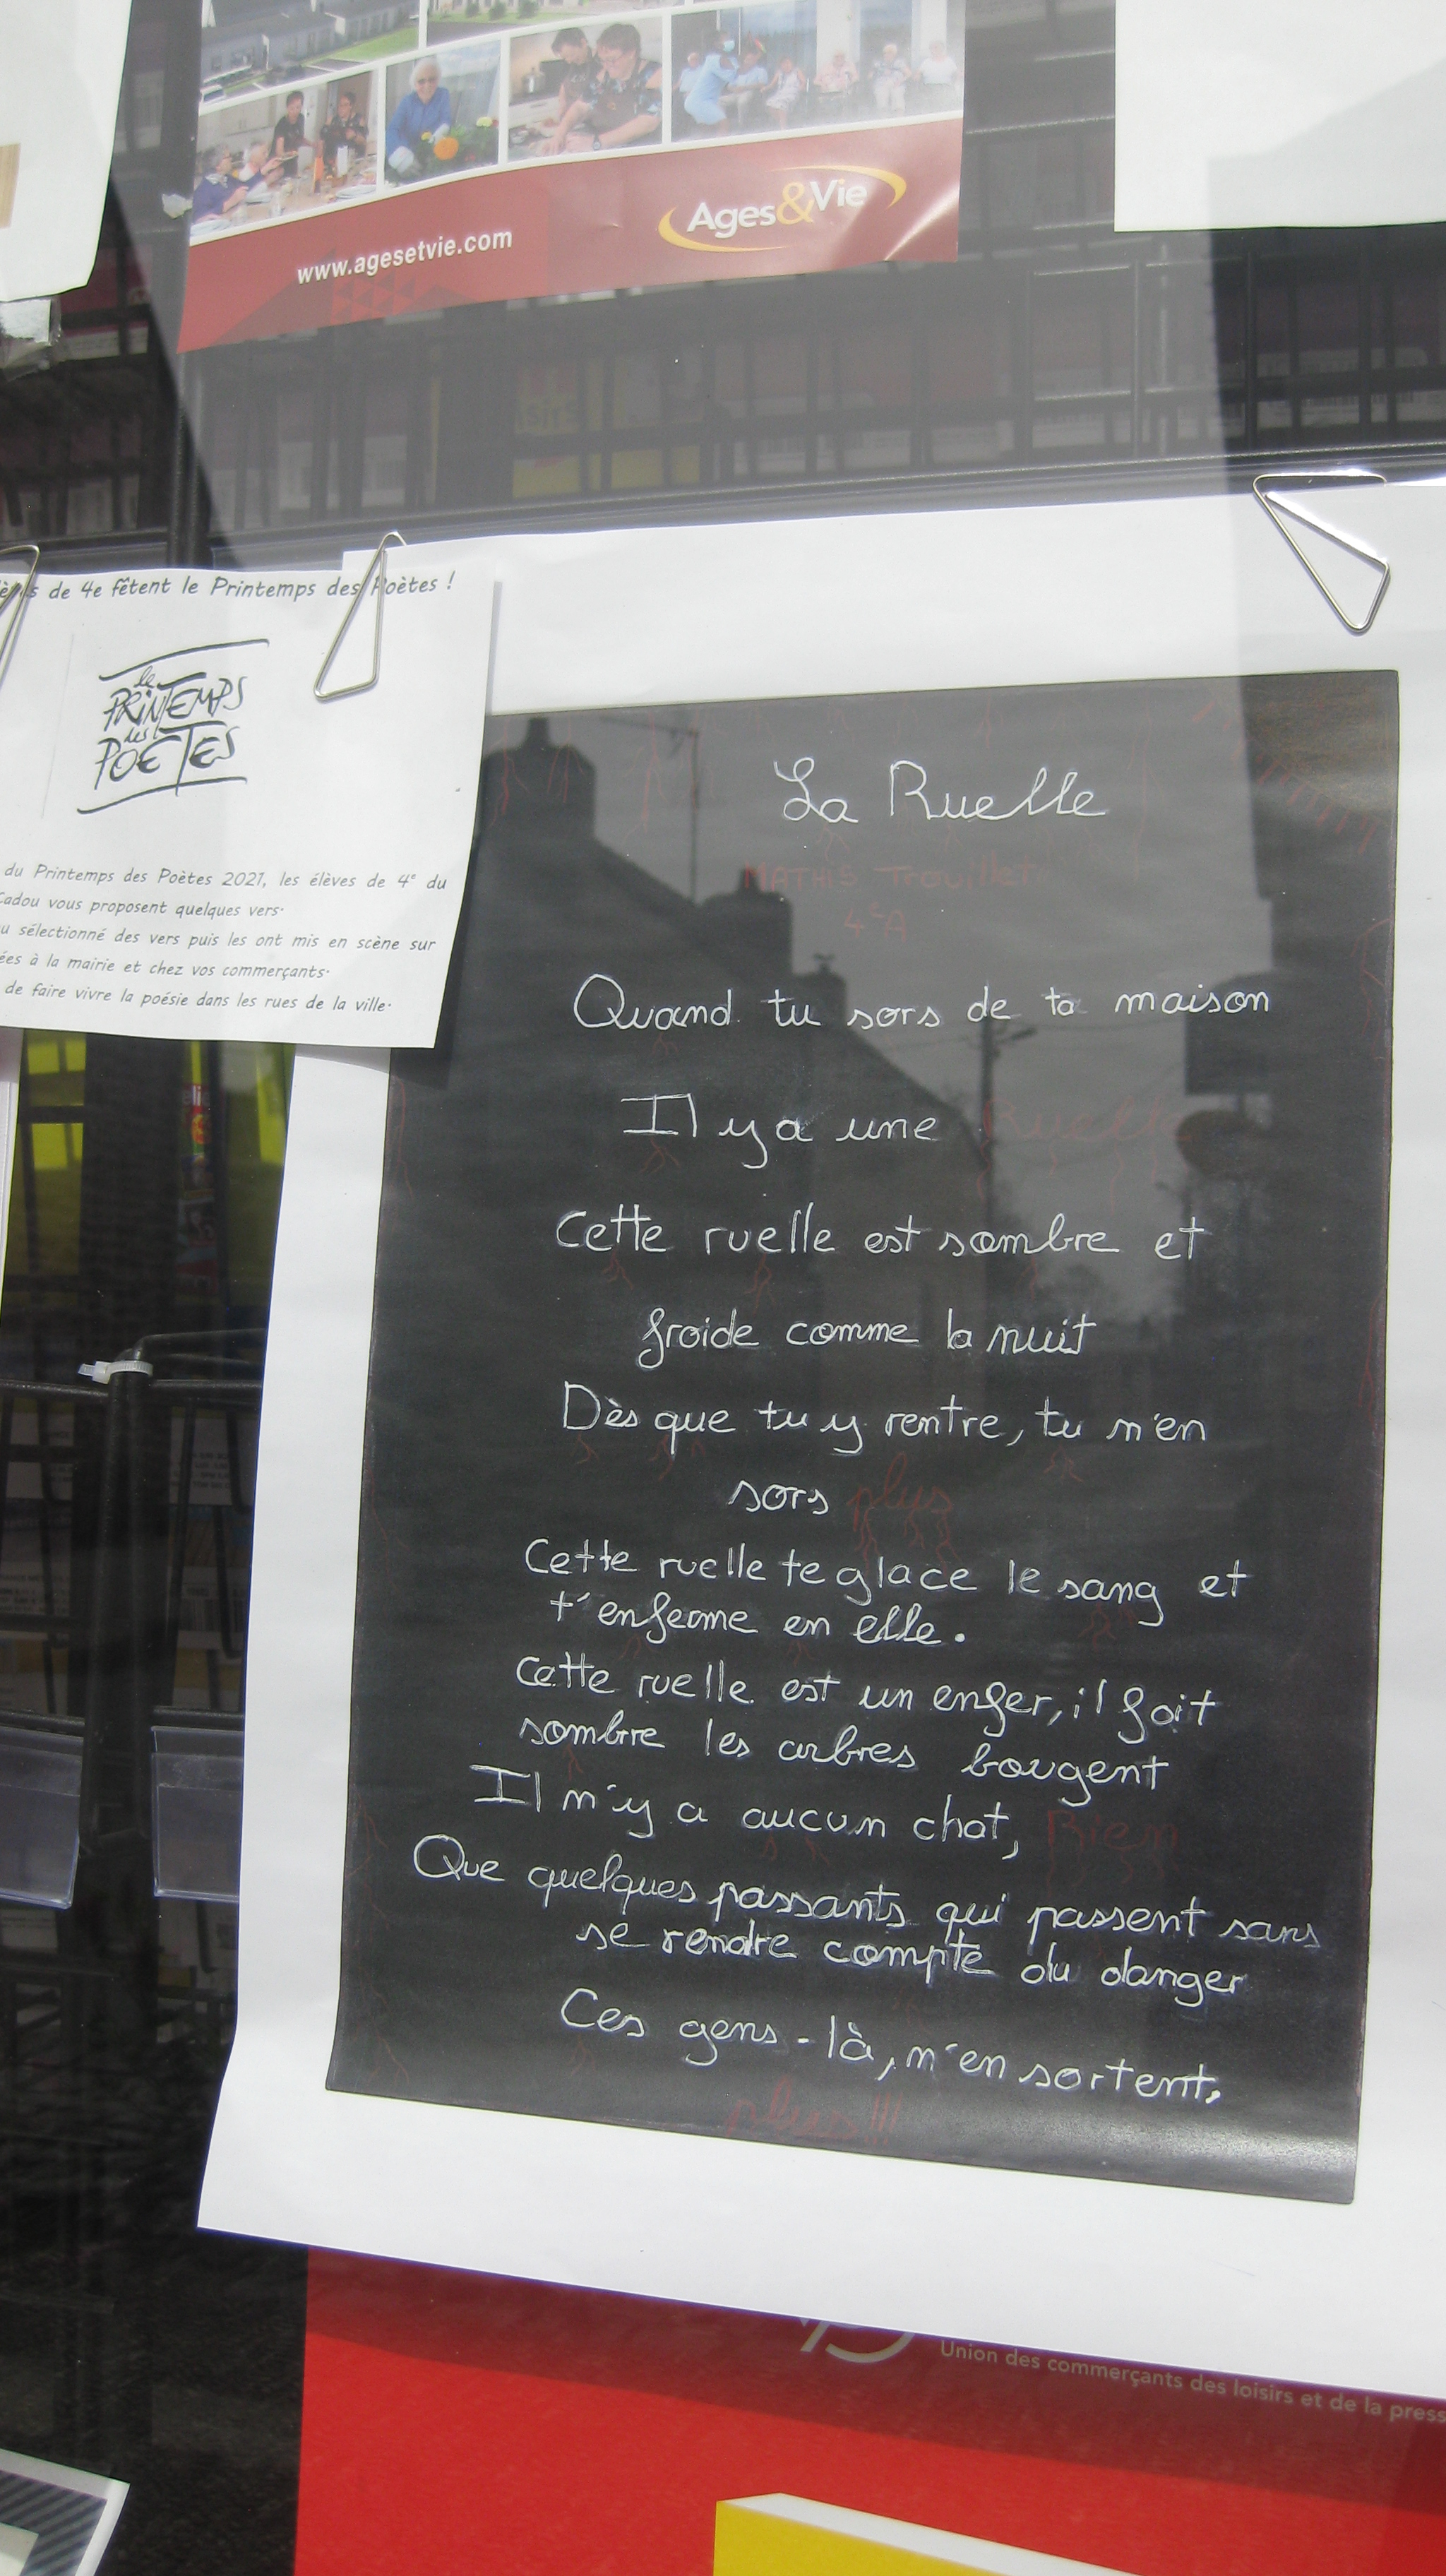 www.agesetvie.com
Ages&Vie
de 4e fêtent le Printemps des Poètes !
le
PRINTEMPS
des
POETES
du Printemps des Poètes 2021, les élèves de 4e du
Cadou vous proposent quelques vers.
sélectionné des vers puis les ont mis en scène sur
à la mairie et chez vos commerçants.
de faire vivre la poésie dans les rues de la ville.
La Ruelle
MATHIS Trouillet
4eA
Quand tu sors de ta maison
Il y a une Ruelle
Cette ruelle est sombre et
froide comme la nuit
Dès que tu y rentre, tu n'en
sors plus
Cette ruelle te glace le sang et
t'enferme en elle.
Cette ruelle est un enfer, il fait
sombre les arbres bougent
Il n'y a aucun chat, Rien
Que quelques passants qui passent sans
se rendre compte du danger
Ces gens-là, n'en sortent.
plus!!!
Union des commerçants des loisirs et de la press